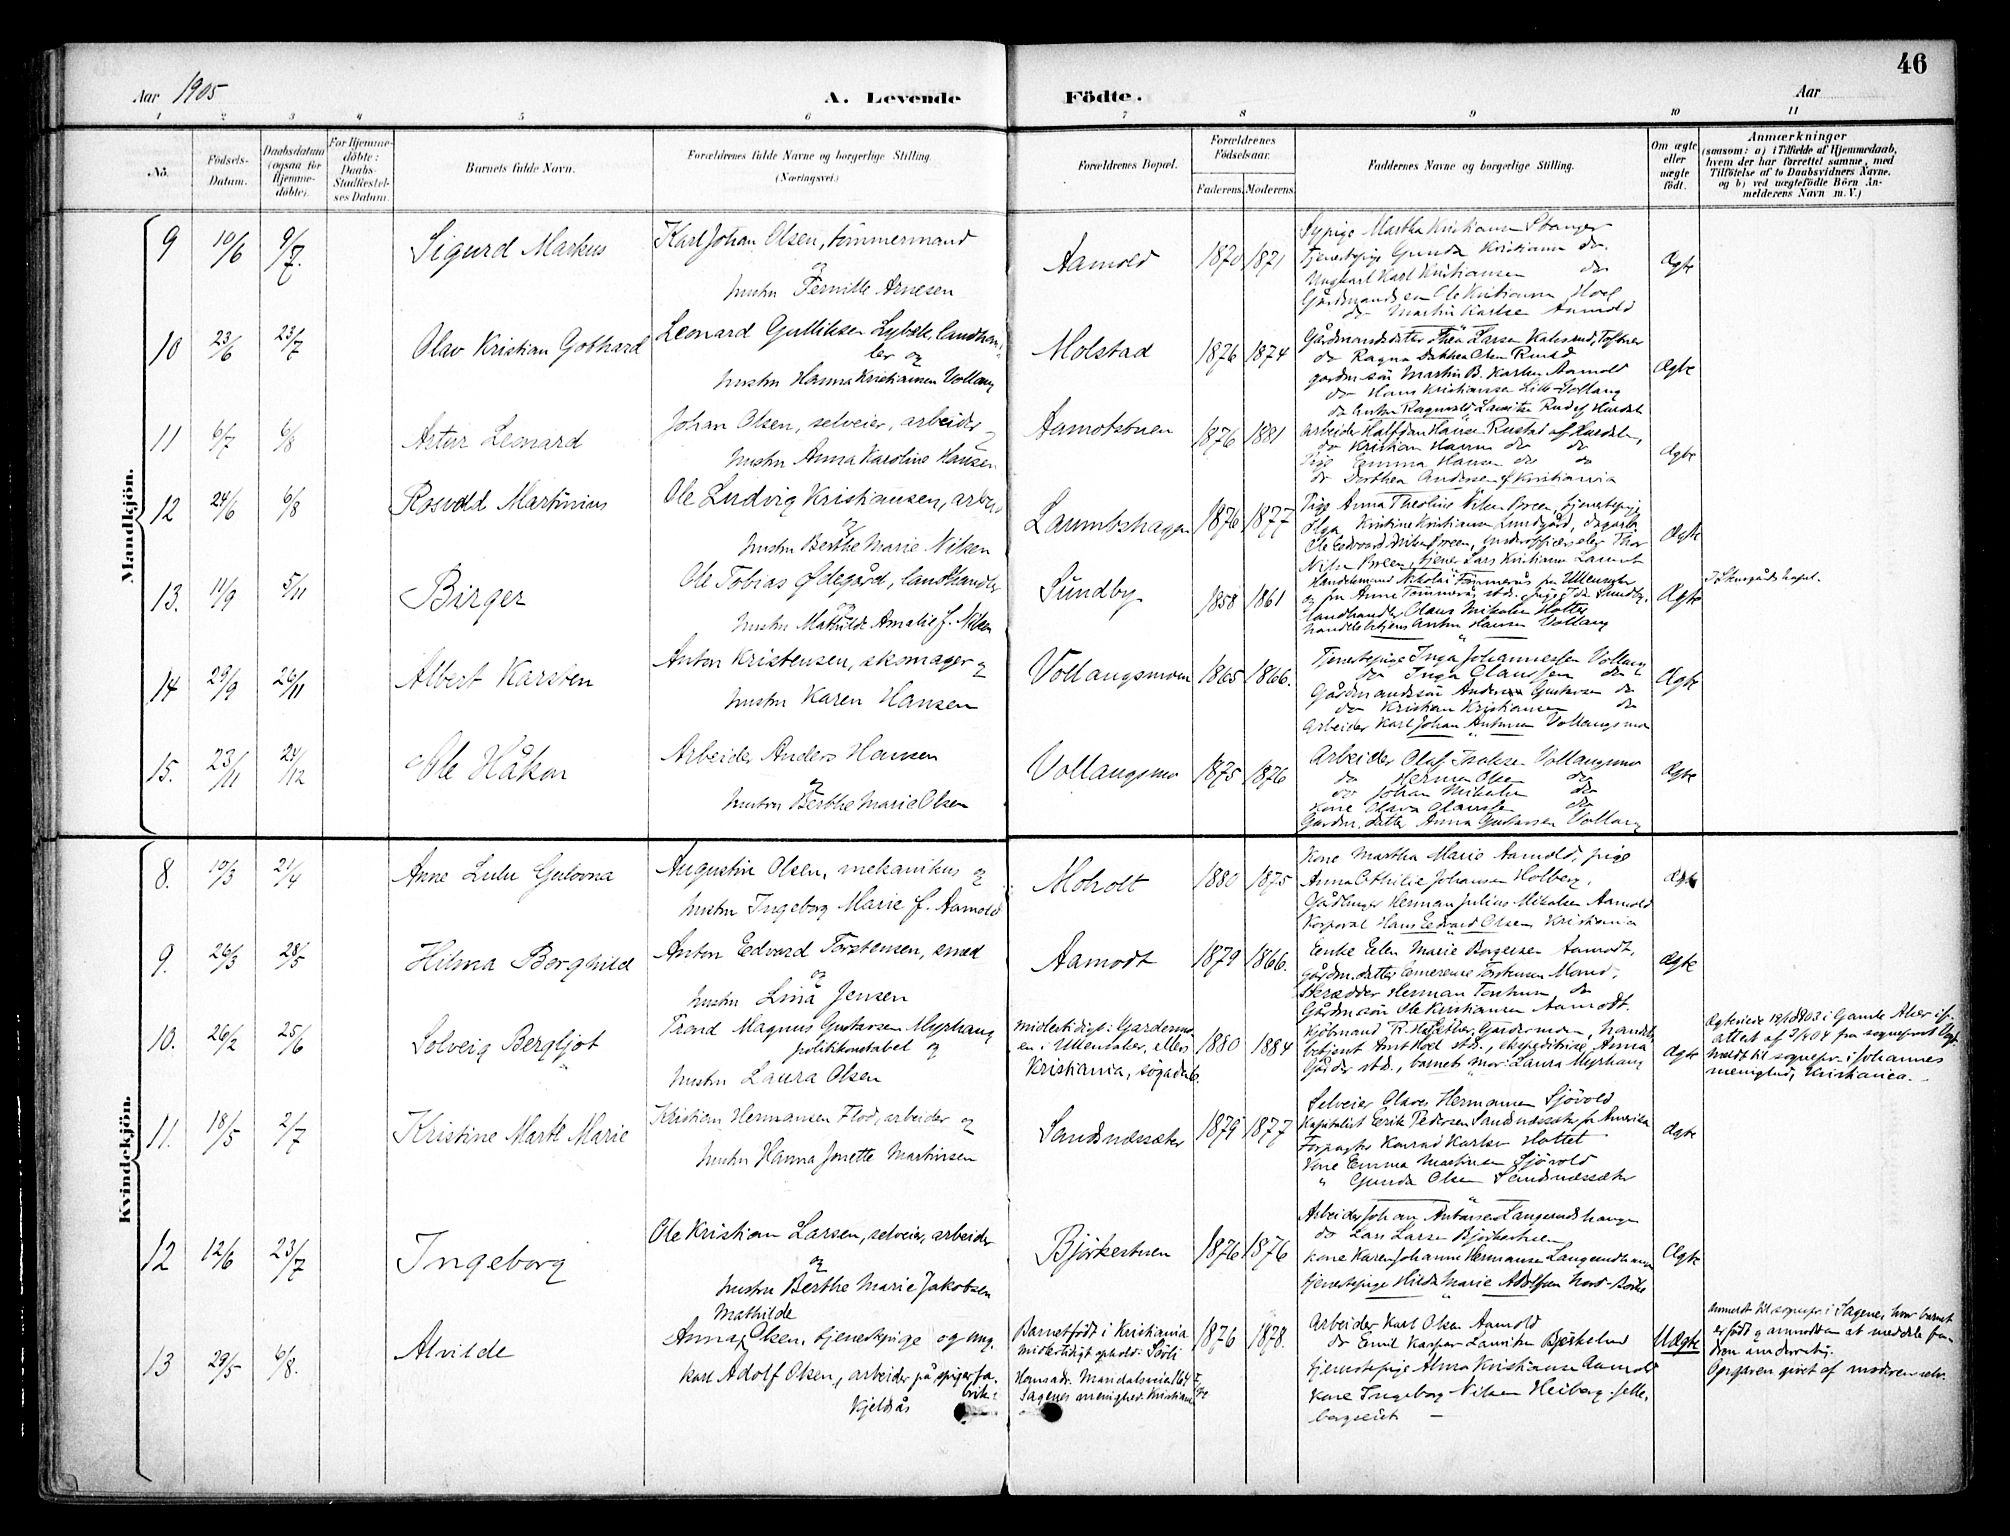 46
Aar 1905
A. Levende
Födte.
Aar
1 2 3 4 5 6 7 8 9 10 11
No.
Födsels-Datum.
Daabsdatum (ogsaa for Hjemmedöbte).
For Hjemmedöbte: Daabs-Stadfæstelses Datum.
Barnets fulde Navn.
Forældrenes fulde Navne og borgerlige Stilling. (Næringsvei.)
Forældrenes Bopæl.
Forældrenes Födselsaar.
Faderens. Moderens.
Faddernes Navne og borgerlige Stilling.
Om ægte eller uægte födt.
Anmærkninger
(saasom: a) i Tilfælde af Hjemmedaab, hvem der har forrettet samme, med Tilföielse af to Daabsvidners Navne. og b) ved uægtefödte Börn Anmelderens Navn m. V.)
Mandkjön.
9 10/6 9/7. Sigurd Markus
Karl Johan Olsen, tömmermand
og
hustru Pernille Arnesen
Aamold 1870 1871
Sypige Martha Kristiansen Stranger
Tjenestepige Gunda Kristiansen do.
Ungkarl Karl Kristiansen do
Gårdmandssön Ole Kristiansen Hoel
do Martin Karlsen Aamold
Ægte
10 23/6 23/7 Olav Kristian Gothard
Leonard Gulliksen Lybæk, landhandler og
hustru Hanna Kristiansen Vollang
Molstad 1876 1874
Gårdmandsdatter Thea Larsen
do Ragna Olsen Rustad
gårdm. sön Martin B. Karlsen Aamold
do Hans Kristiansen Lille-Vollang
do Anton Ragnvald Lauritz Rud af Hurdal
Ægte
11 6/7 6/8 Artur Leonard
Johan Olsen, selveier, arbeider og
hustru Anna Karoline Hansen
Aamotstuen 1876 1881
arbeider Halfdan Hansen Rustad af Hurdalen,
do Kristian Hansen do do
Pige Emma Hansen do do
do Dorthea Andersen af Kristiania
Ægte
12 24/6 6/8 Rosvold Martinius
Ole Ludvig Kristiansen, arbeid
og
hustru Berthe Marie Nilsen
Laumbshagen 1876 1877
Pige Anna Theoline Nilsen Breen, tjenestepige
Olga Kristine Kristiansen Lundgård,
Ole Edvard Nilsen Breen, underofficerselev Thor
Nilsen Breen, tjener Lars Kristiansen Laumb
Ægte
13. 11/9 5/11 Birger
Ole Tobias Ødegård, landhandler
og
hustru Mathilde Amalie f. Nilsen
Sundby 1858 1861
Handelsmand Nikolai Tømmerås fra Ullensaker
og fru Anne Tømmerås std. Sundby,
landhandler Claus Mikolsen Holter,
handelsbetjent Anton Hansen Vollang
Ægte
14 29/9 26/11 Albert Karsten
Anton Kristensen, skomager og
hustru Karen Hansen
Vollangsmoen 1865 1866.
Tjenestepige Inga Johannessen Vollang
do Inga Claussen do
Gårdmandssön Anders Gustavsen do
do Kristian Kristiansen do
Arbeider Karl Johan Antonsen Vollangsmo
Ægte
15. 23/11 24/12 Ole Håkon
Arbeider Anders Hansen
og
hustru Berthe Marie Olsen
Vollangsmo 1875 1876
Arbeider Olaf Isaksen Vollangsmo
do Herman Olsen do
do Johan Mikalsen do
Kone Olava Claussen do
Gårdm. datter Anna Gustavsen Vollang
Ægte
Kvindekjön.
8. 10/3 21/4 Anne Lulu Gulovna
Augustin Olsen, mekanikus og
hustru Ingeborg Marie f. Aamold
Moholt 1880 1875
Kone Martha Marie Aamold, pige
Anna Othilie Johansen Holberg,
Gårdbruger Herman Julius Mikalsen Aamold
Korporal Hans Edvard Olsen Kristiania
Ægte
9. 26/3 28/5 Hilma Borghild
Anton Edvard Torstensen, smed
og
hustru Lina Jensen
Aamodt 1879 1866.
Enke Elen Marie Borgersen Aamodt,
gårdm. datter Emerense Torstensen Moand,
Skrædder Herman Torstensen do
Gårdm. sön Ole Kristiansen Aamodt.
Ægte
10. 26/2 25/6 Solveig Bergljot
Trond Magnus Gustavsen Myrhaug
politikonstabel og
hustru Laura Olsen
midlertidigt: Gardermoen i Ullensaker, ellers
Kristiania, søgade 6.
1880 1884
Kjøbmand Gardermoen, handels-
betjent Hoel std., ekspeditrice Anna
Gårder std., barnets mor: Laura Myrhaug
Ægte
Ægteviede 19/12 1903 i Gamle Aker ifølge
attest af 2/1 04 fra sogneprest
meldt til sognepr. i Johannes
menighed, Kristiania.
11. 18/5 2/7 Kristine Marte Marie
Kristian Hermansen Flod, arbeider og
hustru Hanna Jonette Martinsen
Sandsnæssæter 1879 1877
Selveier Olaves Hermansen Sjövold
Kapitalist Erik Pedersen Sandsnæssæter fra Amerika
Forpagter Konrad Karlsen Holtet
Kone Emma Martinsen Sjövold
" Gunda Olsen Sandsnæssæter
Ægte
12 12/6 23/7 Ingeborg
Ole Kristian Larsen, selveier, arbeider
og
hustru Berthe Marie Jakobsen
Björkestuen 1876 1876
Arbeider Johan Antonsen Langerudshaugen
do Lars Larsen Björkestuen
kone Karen Johanne Hermansen Langerudhaugen
tjenestepige Hilda Marie Adolfsen
Ægte
13 29/5 6/8. Alvilde
Mathilde
Anna Olsen, tjenestepige og ung.
karl Adolf Olsen, arbeider på spigerfabrik:
Kjelsås
Barnet født i Kristiania
midlertidigt ophold: Sörli
Mandalsveien
Sagenes menighed Kristiania
1876 1878.
Arbeider Karl Olsen Aamold
do Emil Kasper Lauritsen Bjerkelund
tjenestepige Alma Kristiansen Aamold
Kone Ingeborg Nilsen Heiberg-fjelle-
bergseiet
Uægte
anmeldt til sognepr. i Sagene, hvor barnet
er født og anmodden at meddele faderen underretning.
Opgaven givet af moderen selv.